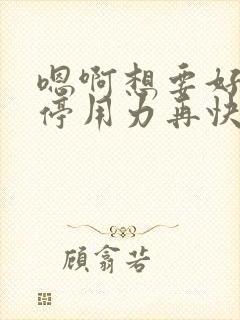 嗯啊想要好
停用力再快
顾翕若